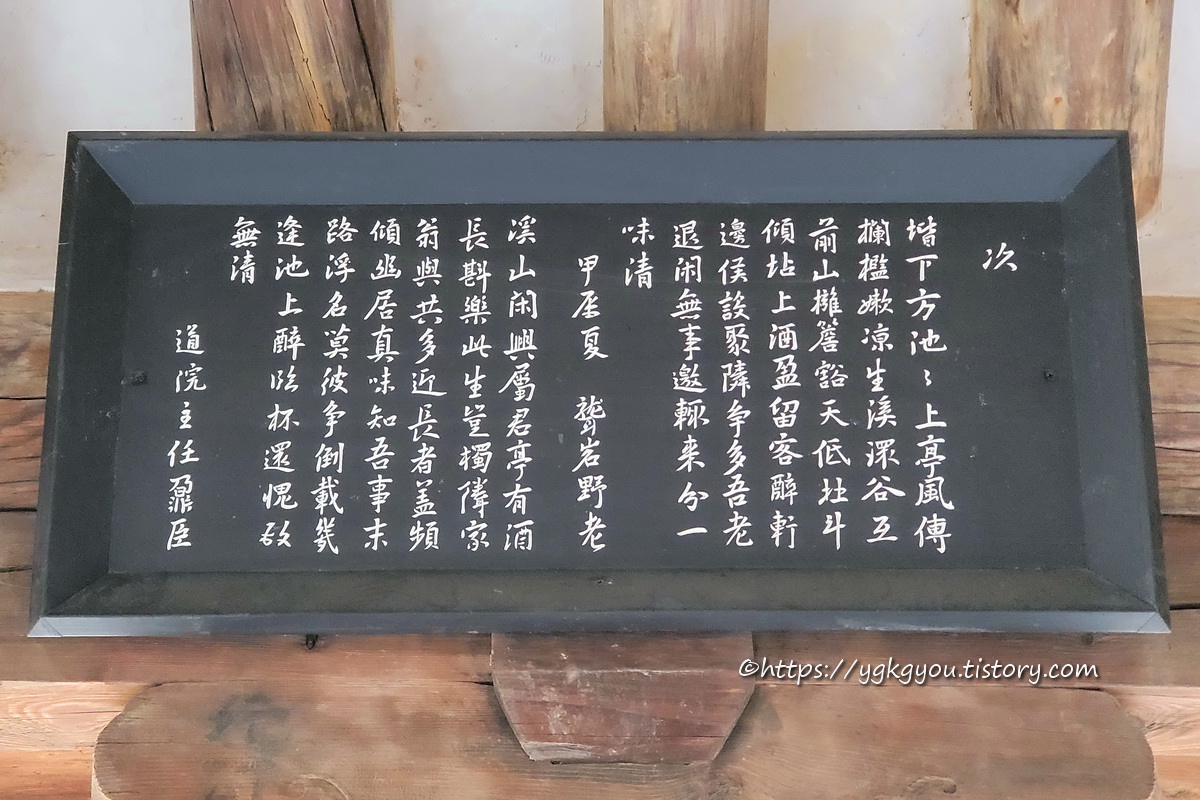 次
堦下方池〻上亭風傳
欄檻嫩凉生溪環谷互
前山擁簷豁天低北斗
傾坫上酒盈留客醉軒
邊侯設聚隣争多吾老
退闲無事邀輒来分一
味清
甲辰夏 聾岩野老
溪山闲興屬君亭有酒
長斟樂此生豈獨隣家
翁與共多近長者盖頻
傾幽居真味知吾事末
路浮名莫彼争倒載幾
逢池上醉臨杯還愧政
無清
道院主任鼐臣
©https://ygkgyou.tistory.com